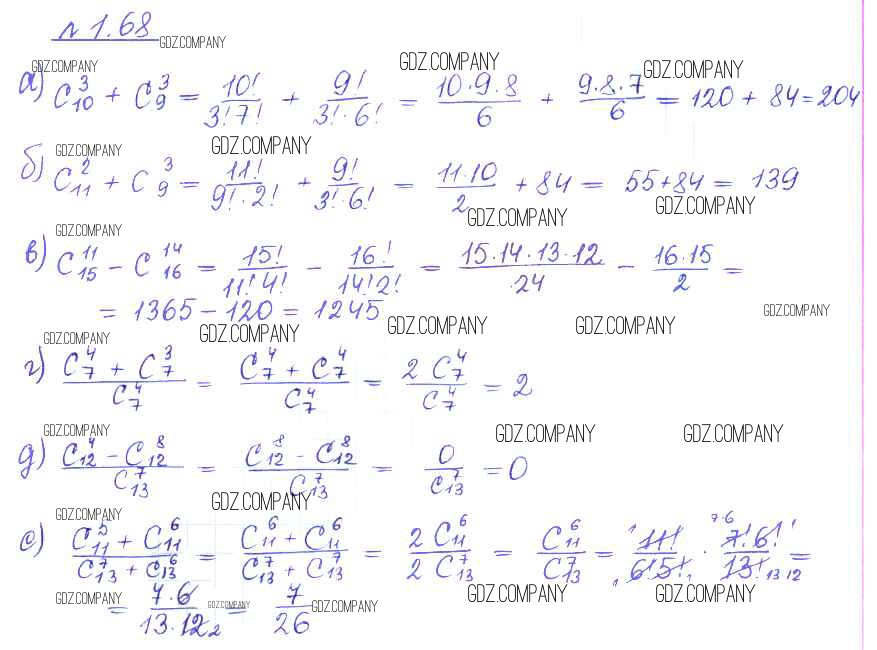 № 1.68
GDZ.COMPANY
GDZ.COMPANY GDZ.COMPANY GDZ.COMPANY
а) C₁₀³ + C₉³ = 10!/(3!7!) + 9!/(3!·6!) = (10·9·8)/6 + (9·8·7)/6 = 120 + 84 = 204
GDZ.COMPANY GDZ.COMPANY
б) C₁₁² + C₉³ = 11!/(9!·2!) + 9!/(3!·6!) = (11·10)/2 + 84 = 55+84 = 139
GDZ.COMPANY GDZ.COMPANY GDZ.COMPANY
в) C₁₅¹¹ − C₁₆¹⁴ = 15!/(11!4!) − 16!/(14!2!) = (15·14·13·12)/24 − (16·15)/2 =
= 1365 − 120 = 1245
GDZ.COMPANY
GDZ.COMPANY GDZ.COMPANY GDZ.COMPANY GDZ.COMPANY
г) (C₇⁴ + C₇³)/C₇⁴ = (C₇⁴ + C₇⁴)/C₇⁴ = 2C₇⁴/C₇⁴ = 2
GDZ.COMPANY GDZ.COMPANY GDZ.COMPANY
д) (C₁₂⁴ − C₁₂⁸)/C₁₃⁷ = (C₁₂⁸ − C₁₂⁸)/C₁₃⁷ = 0/C₁₃⁷ = 0
GDZ.COMPANY GDZ.COMPANY
е) (C₁₁⁵ + C₁₁⁶)/(C₁₃⁷ + C₁₃⁶) = (C₁₁⁶ + C₁₁⁶)/(C₁₃⁷ + C₁₃⁷) = 2C₁₁⁶/2C₁₃⁷ = C₁₁⁶/C₁₃⁷ = 11!/(6!5!) · 7!·6!/13! =
GDZ.COMPANY GDZ.COMPANY GDZ.COMPANY GDZ.COMPANY GDZ.COMPANY
= (7·6)/(13·12) = 7/26